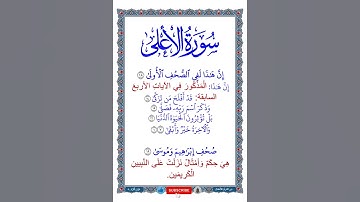 سُورَةُ الأَعْلَى
إِنَّ هَٰذَا لَفِي الصُّحُفِ الْأُولَىٰ ١٨
إِنَّ هَٰذَا: الْمَذْكُورَ فِي الْآيَاتِ الْأَرْبَعِ
السَّابِقَةِ: قَدْ أَفْلَحَ مَن تَزَكَّىٰ
وَذَكَرَ اسْمَ رَبِّهِ فَصَلَّىٰ
بَلْ تُؤْثِرُونَ الْحَيَاةَ الدُّنْيَا
وَالْآخِرَةُ خَيْرٌ وَأَبْقَىٰ
صُحُفِ إِبْرَاهِيمَ وَمُوسَىٰ ١٩
هِيَ حِكَمٌ وَأَمْثَالٌ نَزَلَتْ عَلَى النَّبِيَّيْنِ
الْكَرِيمَيْنِ.
SUBSCRIBE